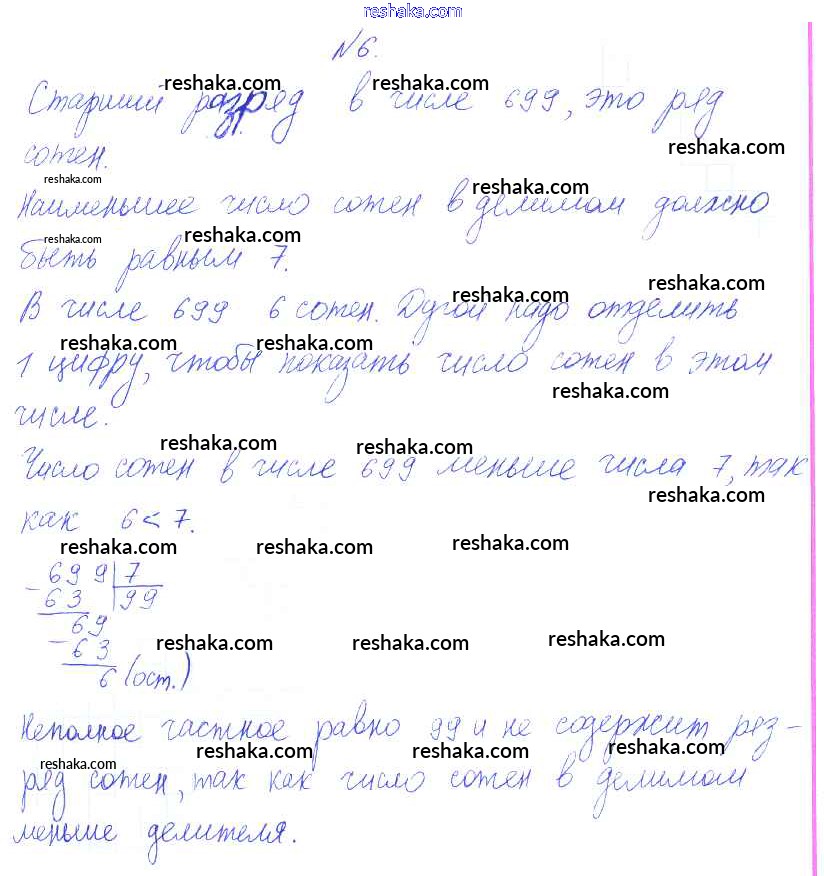 reshaka.com
№6.
Старший разряд в числе 699, это ряд
reshaka.com reshaka.com
reshaka.com
сотен.
reshaka.com reshaka.com
Наименьшее число сотен в делимом должно
reshaka.com reshaka.com
быть равным 7.
reshaka.com reshaka.com
В числе 699 6 сотен. Дугой надо отделить
reshaka.com reshaka.com
1 цифру, чтобы показать число сотен в этом
reshaka.com
числе.
reshaka.com reshaka.com
Число сотен в числе 699 меньше числа 7, так
reshaka.com
как 6 < 7.
reshaka.com reshaka.com reshaka.com
- 699 | 7
63 | 99
69
reshaka.com reshaka.com reshaka.com
- 63
6 (ост.)
Неполное частное равно 99 и не содержит рез-
reshaka.com reshaka.com reshaka.com reshaka.com
ряд сотен, так как число сотен в делимом
меньше делителя.